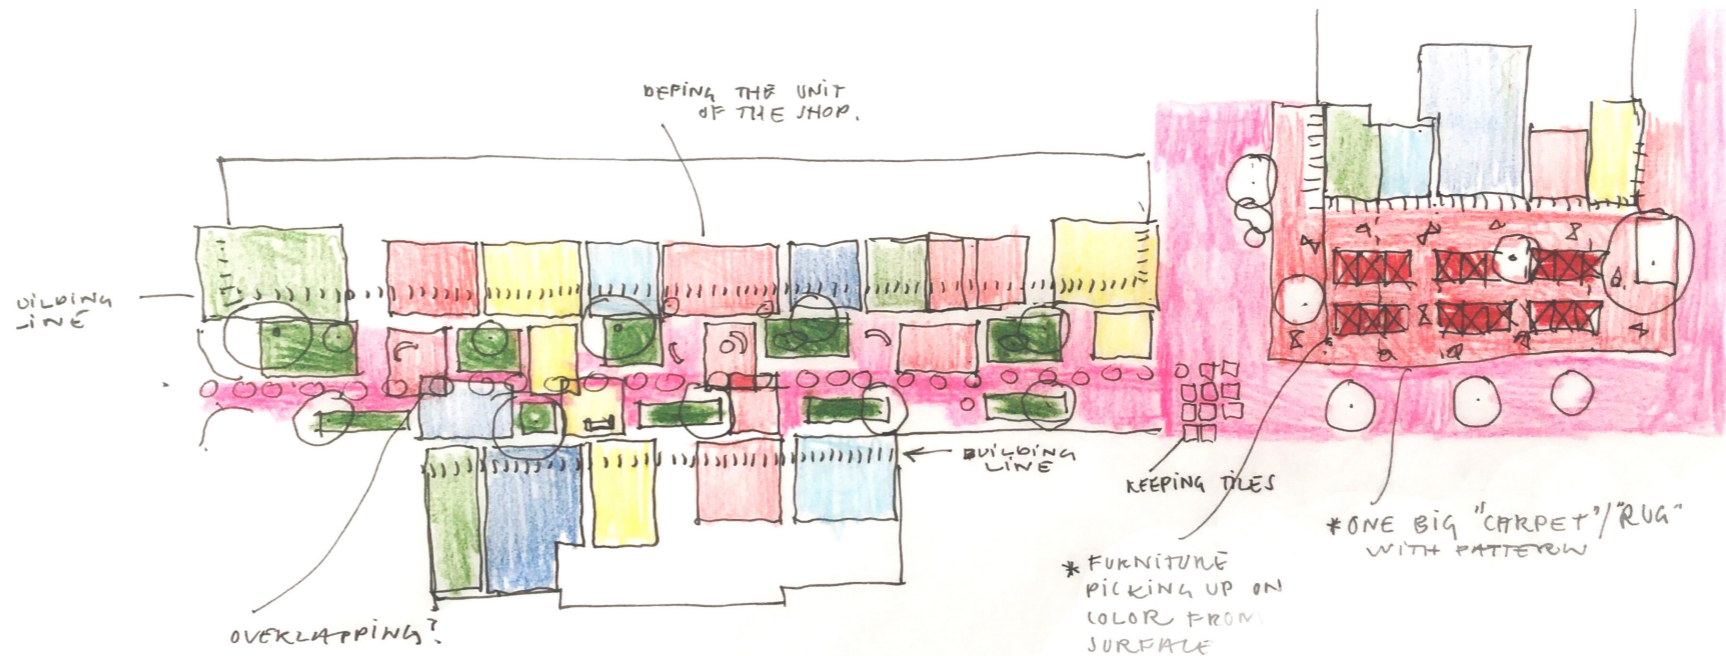 DEFING THE UNIT
OF THE SHOP.
UILDING
LINE
BUILDING
LINE
KEEPING TILES
*ONE BIG "CARPET"/"RUG"
WITH PATTERN
* FURNITURE
PICKING UP ON
COLOR FROM
SURFACE
OVERLAPPING?